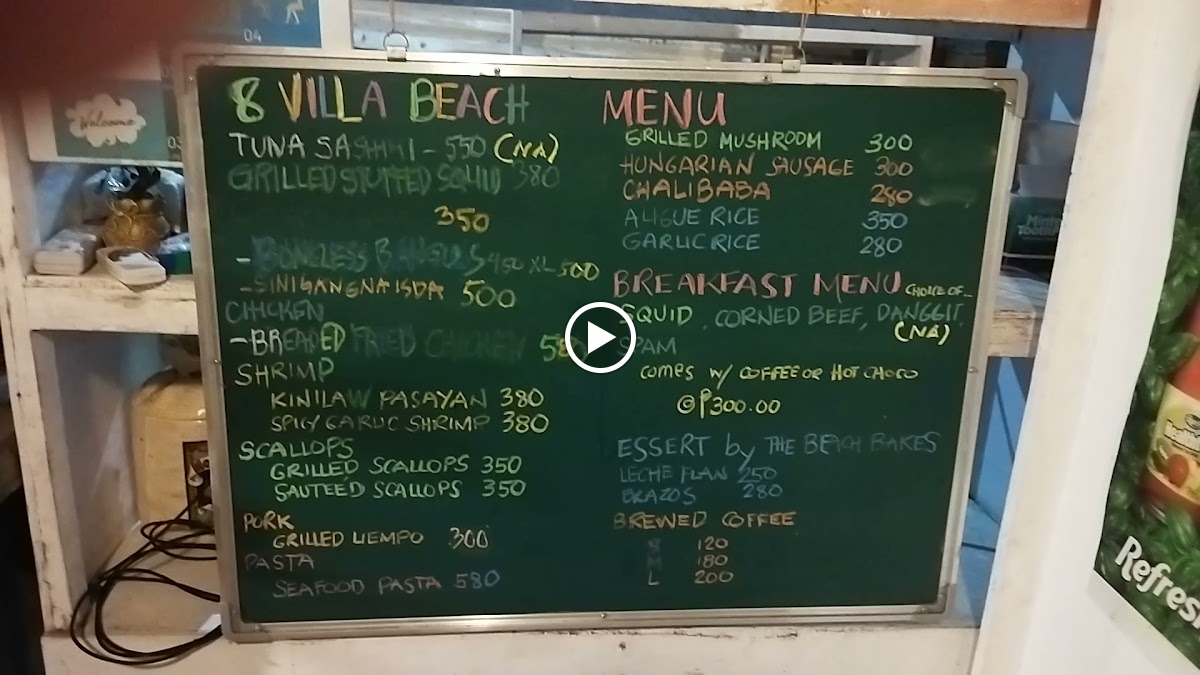 8 VILLA BEACH MENU
TUNA SASHIMI - 550 (NA)
GRILLED STUFFED SQUID 380
350
- BONELESS BANGUS 450 XL-500
- SINIGANG NA ISDA 500
CHICKEN
- BREADED FRIED CHICKEN
SHRIMP
KINILAW PASAYAN 380
SPICY GARLIC SHRIMP 380
SCALLOPS
GRILLED SCALLOPS 350
SAUTEÉD SCALLOPS 350
PORK
GRILLED LIEMPO 300
PASTA
SEAFOOD PASTA 580
GRILLED MUSHROOM 300
HUNGARIAN SAUSAGE 300
CHALIBABA 280
ALIGUE RICE 350
GARLIC RICE 280
BREAKFAST MENU CHOICE OF...
SQUID, CORNED BEEF, DANGGIT,
(NA)
SPAM
COMES W/ COFFEE OR HOT CHOCO
@ ₱300.00
ESSERT by THE BEACH BAKES
LECHE FLAN 250
BRAZOS 280
BREWED COFFEE
S 120
M 180
L 200
Welcome
04
03
Refres